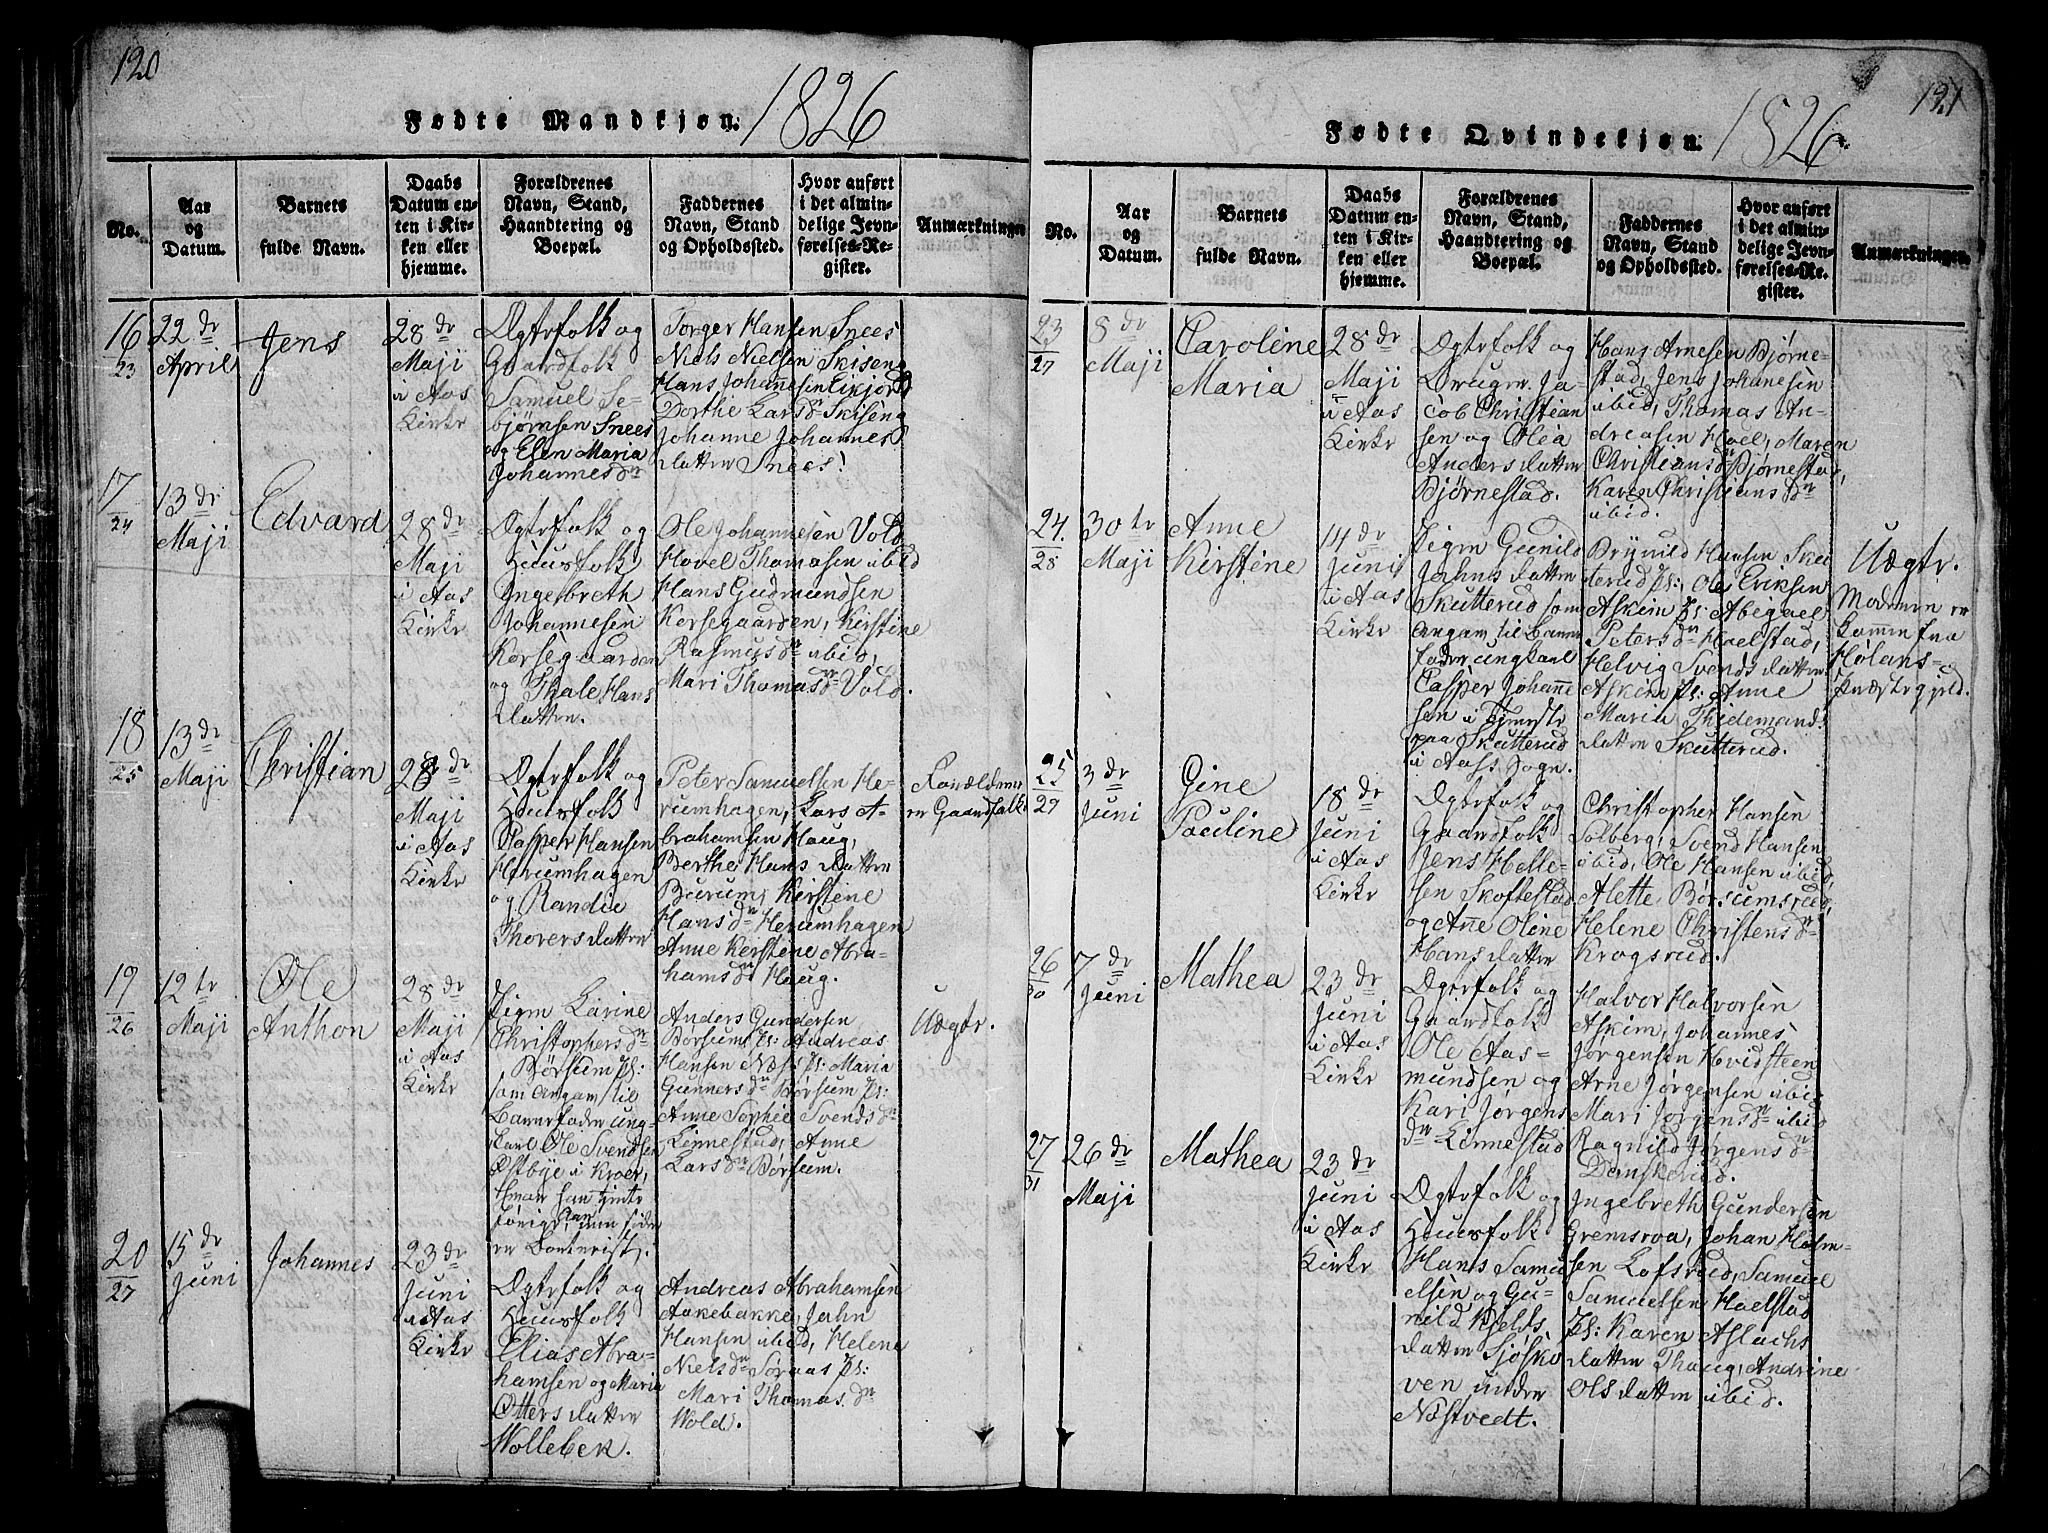 120
Fødte Mandkjøn. 1826
No.
Aar
og
Datum.
Barnets
fulde Navn.
Daabs
Datum en-
ten i Kir-
ken eller
hjemme.
Forældrenes
Navn, Stand,
Haandtering og
Boepæl.
Faddernes
Navn, Stand
og Opholdssted.
Hvor anført
i det almin-
delige Jevn-
førelses-Re-
gister.
Anmærkninger
16
23
22 dr
April
Jens
28 dr
Maji
i Aas
Kirke
Ægtefolk og
Gaardfolk
Samuel Se-
bjørnsen Snees
og Elen Maria
Johannesdr
Torger Hansen Snees
Niels Nielsen Skiseng
Hans Johannesen Eikjord
Dorthe Larsdr Skiseng
Johanne Johannes
datter Snees.
17
24
13 dr
Maji
Edvard
28 dr
Maji
i Aas
Kirke
Ægtefolk og
Huusfolk
Ingebreth
Johannesen
Korsegaarden
og Thale Hans
datter.
Ole Johannesen Vold
Hovel Thomasen ibid
Hans Gudmundsen
Korsegaarden, Kirstine
Rasmusdr ibid,
Mari Thomasdr Vold.
18
25
13 dr
Maji
Christian
28 dr
Maji
i Aas
Kirke
Ægtefolk og
Huusfolk
Casper Hansen
Herumhagen
og Randie
Thoversdatter
Peter Samuelsen He-
rumhagen, Lars A-
brahamsen Haug,
Berthe Hansdatter
Burum, Kirstine
Hansdr Herumhagen
Anne Kirstine Abra-
hamsdr Haug.
Forældrene
er Gaardfolk
19
26
12 te
Maji
Ole
Anthon
28 dr
Maji
i Aas
Kirke
Pigen Karine
Christophersdr
Børsum Pl:
som angav til
Barnefader ung-
karl Ole Svendsen
Østbye i Kroer,
hvor han tjente
forige Aar, nu siden
er bortreist.
Anders Gundersen
Børsum Pl: Andreas
Hansen Næs Pl: Maria
Gunnersdr Børsum Pl:
Anne Sophie Svendsdr
Kinnestad, Anne
Larsdr Børsum.
Uægte.
20
27
15 dr
Juni
Johannes
23 dr
Juni
i Aas
Kirke
Ægtefolk og
Huusfolk
Elias Abra-
hamsen og Maria
Ottersdatter
Wollebek.
Andreas Abrahamsen
Aakebakke, John
Hansen ibid, Helene
Nielsdr Søraas Pl:
Mari Thomasdr
Wold.
121
Fødte Qvindekjøn. 1826
No.
Aar
og
Datum.
Barnets
fulde Navn.
Daabs
Datum en-
ten i Kir-
ken eller
hjemme.
Forældrenes
Navn, Stand,
Haandtering og
Boepæl.
Faddernes
Navn, Stand
og Opholdssted.
Hvor anført
i det almin-
delige Jevn-
førelses-Re-
gister.
Anmærkninger.
23
27
8 dr
Maji
Caroline
Maria
28 dr
Maji
i Aas
Kirke
Ægtefolk og
Ja-
cob Christian
sen og Olea
Andersdatter
Bjørnestad.
Hans Arnesen Bjørne-
stad, Jens Johanesen
ibid, Thomas An-
dreasen Hoel, Maren
Christiansdr Bjørnestad,
Karen Christiansdr
ibid.
24.
28
30 te
Maji
Anne
Kirstine
14 dr
Juni
i Aas
Kirke
Pigen Gunild
Johnsdatter
Skutterud som
angav til Barne
fader ungkarl
Casper Johanne
sen i Tjeneste
paa Skutterud
i Aass Sogn.
Brynild Hansen Skut
terud Pl:, Ole Eriksen
Askim Pl: Abegael
Petersdr Haelstad,
Helvig Svendsdatter
Askim Pl: Anne
Maria Thidemands
datter Skutterud.
Uægte.
Moderen er
kommen fra
Hølans-
Præstegjeld.
25
29
3 dr
Juni
Gine
Pauline
18 dr
Juni
i Aas
Kirke
Ægtefolk og
Gaardfolk
Jens Helle-
sen Skoftestad
og Anne Oline
Hansdatter
Christopher Hansen
Solberg, Svend Hansen
ibid, Ole Hansen ibid,
Alette Børsumsrud,
Helene Christensdr
Krogsrud.
26
30
7 dr
Juni
Mathea
23 dr
Juni
i Aas
Kirke
Ægtefolk og
Gaardfolk
Ole Aas-
mundsen og
Kari Jørgens
dr Kinnestad
Halvor Halvorsen
Askim, Johannes
Jørgensen Hvidsteen
Arne Jørgensen ibid
Mari Jørgensdr ibid
Ragnild Jørgensdr
Danskerud.
27
31
26 dr
Maji
Mathea
23 dr
Juni
i Aas
Kirke
Ægtefolk og
Huusfolk
Hans Samu
elsen og Gu-
nild Kjelds
datter Sjøsko
ven under
Nøstvedt.
Ingebreth Gundersen
Gremsroa, Johan Holm-
sen Lofsrud, Samuel
Samuelsen Haelstad
Pl: Karen Aslachs
datter Thaug, Andrine
Olsdatter ibid.